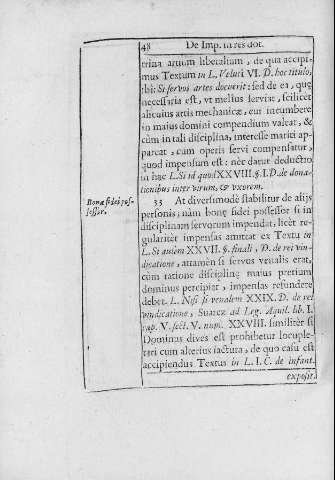 48 De Imp. in res dot.
trina artium liberalium, de qua accipi-
mus Textum in L. Veluti VI. D. hoc titulo,
ibi: Si servos artes docuerit: sed de ea, quę
necessaria est, vt melius serviat, scilicet
alicuius artis mechanicæ, cui incumbere
in maius domini compendium valeat, &
cùm in tali disciplina, interesse mariti ap-
pareat, cum operis servi compensatur,
quod impensum est: nec datur deductio
in hac L. Si id quod XXVIII. §. I. D. de dona-
tionibus inter virum, & vxorem.
Bonæ fidei pos-
sessor.
35 At diversimodè stabilitur de alijs
personis; nàm bonę fidei possessor si in
disciplinam servorum impendat, licèt re-
gulariter impensas amittat ex Textu in
L. Si autem XXVII. §. finali, D. de rei vin-
dicatione, attamèn si servus venalis erat,
cùm ratione disciplinę maius pretium
dominus percipiat, impensas refundere
debet. L. Nisi si venalem XXIX. D. de rei
vindicatione, Suarez ad Leg. Aquil. lib. I.
cap. V. sect. V. num. XXVIII. similitèr si
Dominus dives est prohibetur locuple-
tari cum alterius iactura, de quo casu est
accipiendus Textus in L. I. C. de infant.
exposit.